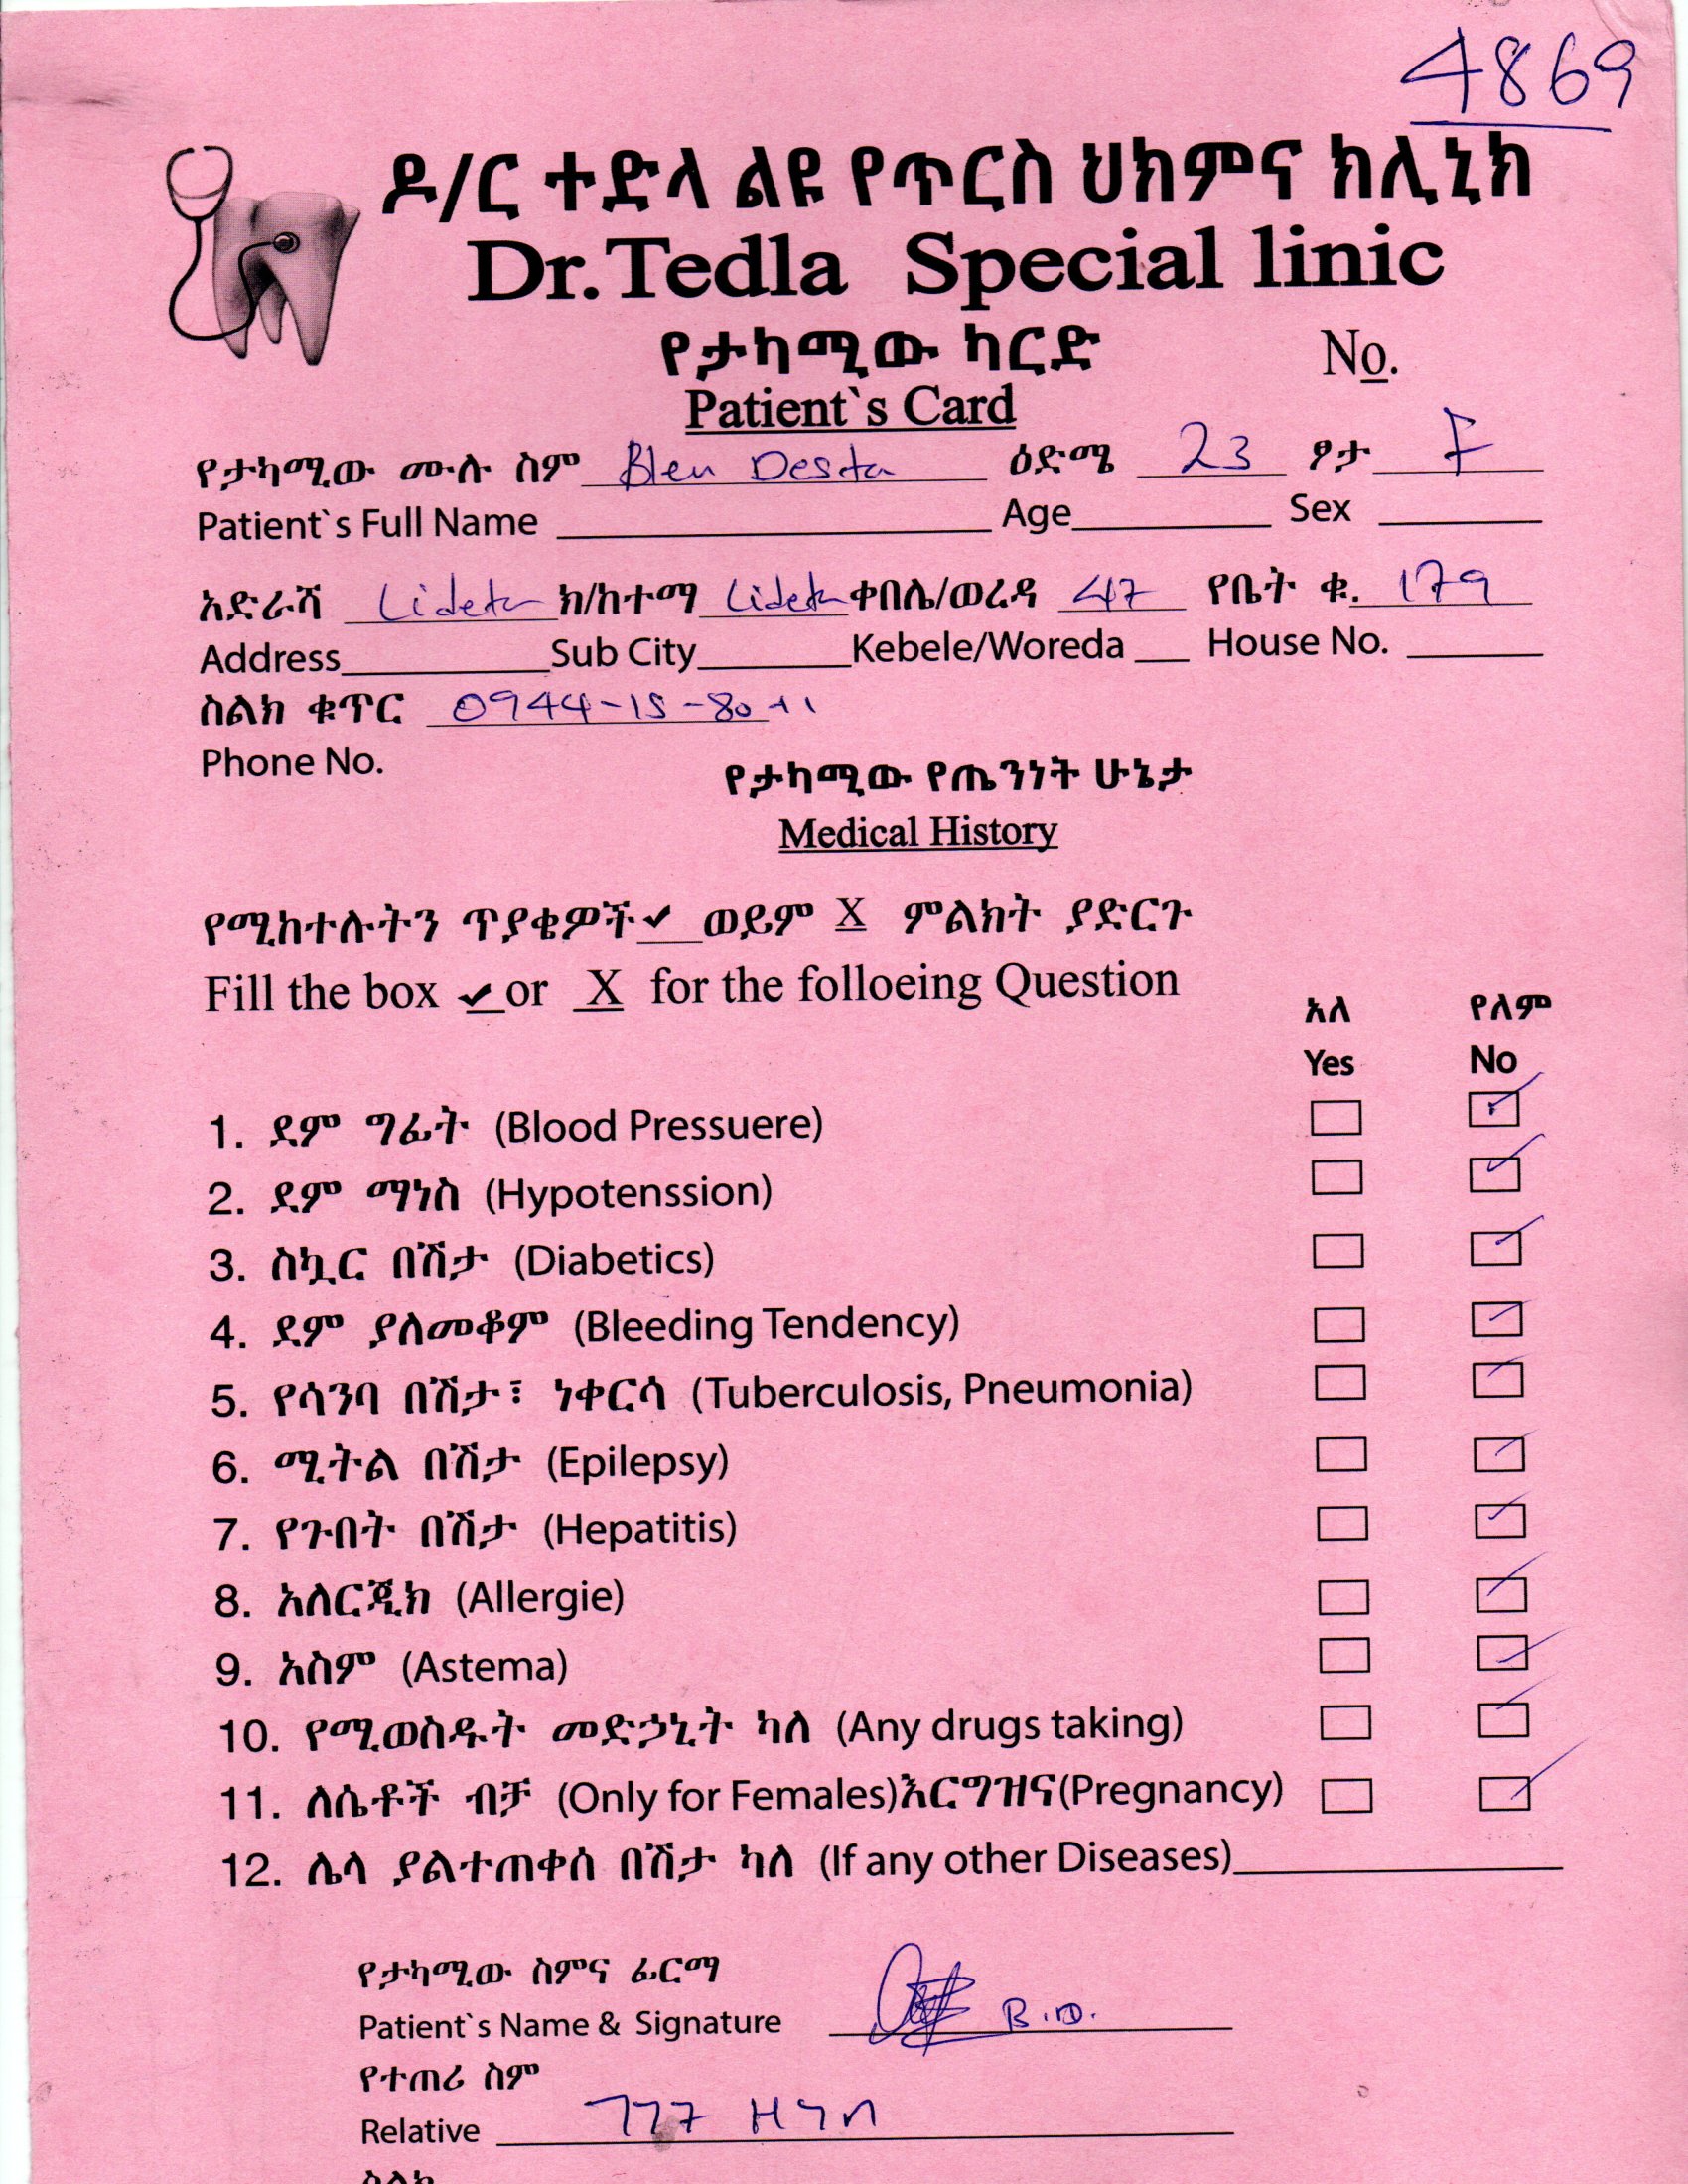 4869
ዶ/ር ተድላ ልዩ የጥርስ ህክምና ክሊኒክ
Dr.Tedla Special linic
የታካሚው ካርድ No.
Patient`s Card
የታካሚው ሙሉ ስም Blen Desta ዕድሜ 23 ፆታ F
Patient`s Full Name Age Sex
አድራሻ Lideta ክ/ከተማ Lideta ቀበሌ/ወረዳ 47 የቤት ቁ. 179
Address Sub City Kebele/Woreda House No.
ስልክ ቁጥር 0944-15-80
Phone No.
የታካሚው የጤንነት ሁኔታ
Medical History
የሚከተሉትን ጥያቄዎች ✓ ወይም X ምልክት ያድርጉ
Fill the box ✓ or X for the folloeing Question
አለ የለም
Yes No
1. ደም ግፊት (Blood Pressuere) ✓
2. ደም ማነስ (Hypotenssion) ✓
3. ስኳር በሽታ (Diabetics) ✓
4. ደም ያለመቆም (Bleeding Tendency) ✓
5. የሳንባ በሽታ፣ ነቀርሳ (Tuberculosis, Pneumonia) ✓
6. ሚትል በሽታ (Epilepsy) ✓
7. የጉበት በሽታ (Hepatitis) ✓
8. አለርጂክ (Allergie) ✓
9. አስም (Astema) ✓
10. የሚወስዱት መድኃኒት ካለ (Any drugs taking) ✓
11. ለሴቶች ብቻ (Only for Females)እርግዝና(Pregnancy) ✓
12. ሌላ ያልተጠቀሰ በሽታ ካለ (If any other Diseases)
የታካሚው ስምና ፊርማ
Patient`s Name & Signature B.D.
የተጠሪ ስም
Relative
ስልክ